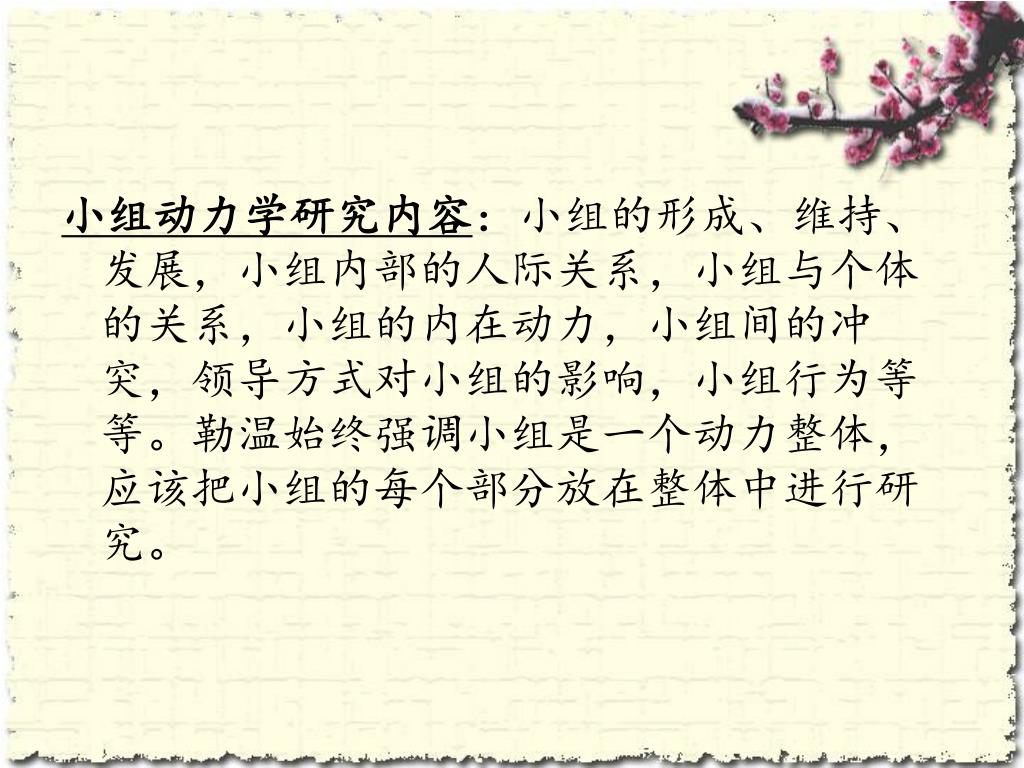 小组动力学研究内容：小组的形成、维持、
发展，小组内部的人际关系，小组与个体
的关系，小组的内在动力，小组间的冲
突，领导方式对小组的影响，小组行为等
等。勒温始终强调小组是一个动力整体，
应该把小组的每个部分放在整体中进行研
究。